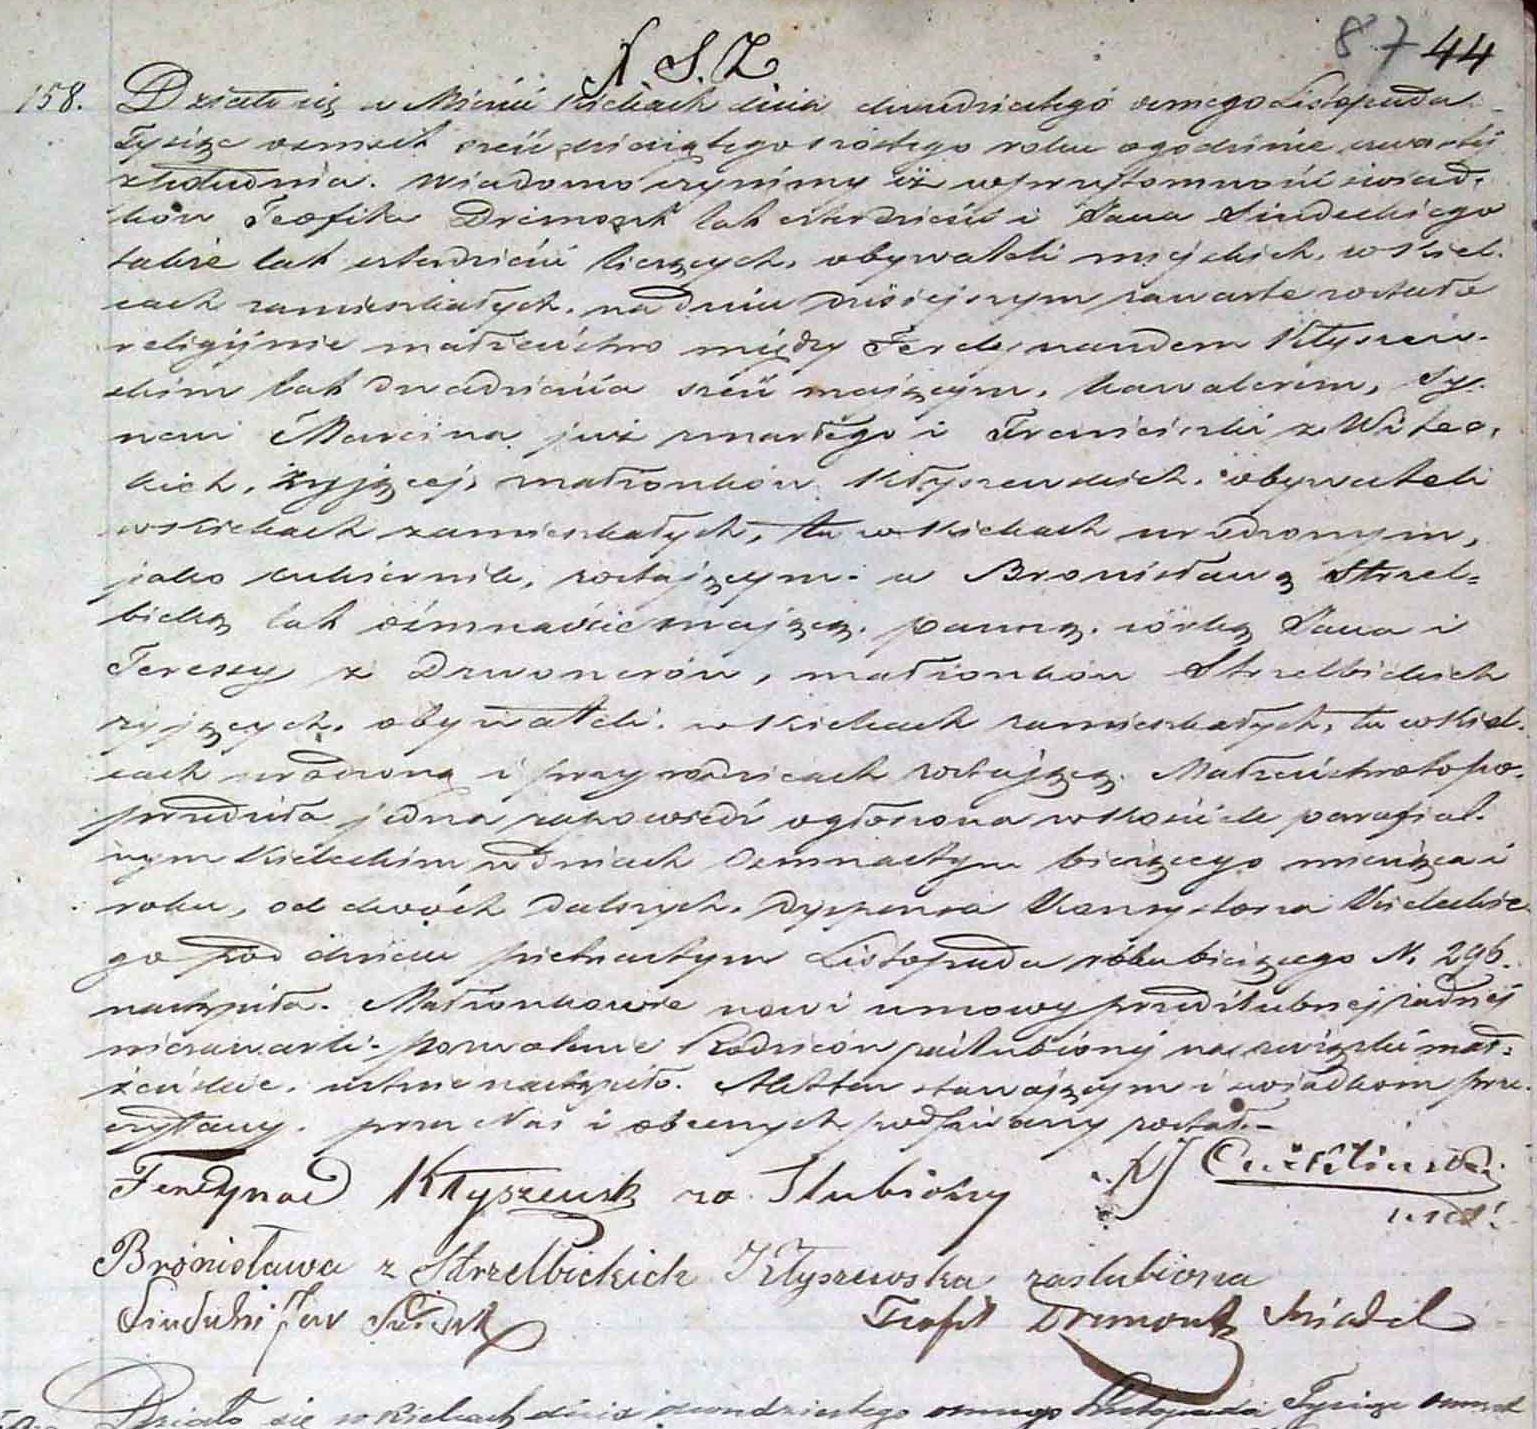 87 44
N. S. Z
158. Działo się w Mieście Kielcach dnia dwudziestego osmego Listopada
Tysiąc ośmset sześćdziesiątego szóstego roku o godzinie czwartej
z południa. Wiadomo czynimy iż w przytomności świad-
ków Teofila Drzmonk lat czterdzieści i Jana Sindeckiego
także lat czterdzieści liczących, obywateli miejskich, w Kiel-
cach zamieszkałych, na dniu dzisiejszym zawarte zostało
religijnie małżeństwo między Ferdynandem Kłyszew-
skim lat dwadzieścia sześć mającym, kawalerem, Sy-
nem Marcina już zmarłego i Franciszki z Witec-
kich, żyjącej, małżonków Kłyszewskich, obywateli
w Kielcach zamieszkałych, tu w Kielcach urodzonym,
jako cukiernik, zostającym. a Bronisławą Strzel-
bicką lat ośmnaście mającą, panną, córką Jana i
Teressy z Dzwonerów, małżonków Strzelbickich
żyjących, obywateli w Kielcach zamieszkałych, tu w Kiel-
cach urodzoną i przy rodzicach zostającą. Małżeństwo to po-
przedziła jedna zapowiedź ogłoszona w Kościele parafial-
nym Kieleckim w dniach Osmnastym bieżącego miesiąca i
roku, od dwóch dalszych, Dyspensa Konsystorza Kieleckie-
go pod dniem pietnastym Listopada roku bieżącego N. 296.
nastąpiła. Małżonkowie nowi umowy przedślubnej żadnej
niezawarli. Pozwolenie Rodziców zaślubionej na związki mał-
żeńskie, ustnie nastąpiło. Akt ten stawającym i świadkom prze-
czytany, przez Nas i obecnych podpisany został.
Ferdynad Kłyszewski za Slubiony
Bronisława z Strzelbickich Kłyszewska zaslubiona
Teofil Drzmonk Swiadek
Działo się w Kielcach dnia dwudziestego osmego Listopada Tysiąc osmset